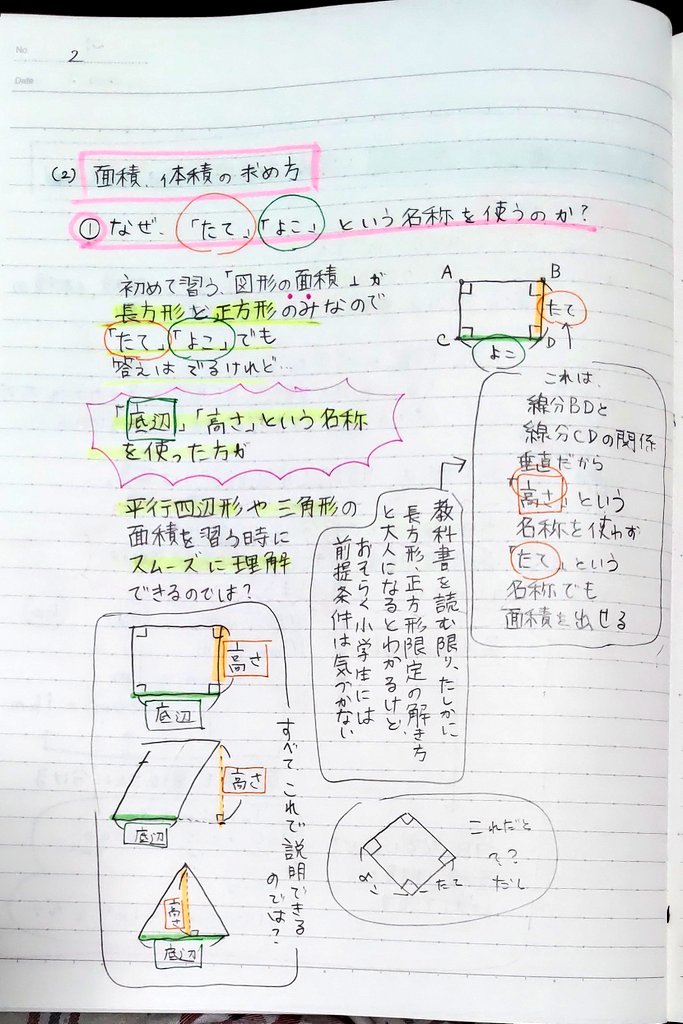 No.
2
Date
(2) 面積、体積の求め方
① なぜ、「たて」「よこ」という名称を使うのか?
初めて習う「図形の面積」が
長方形と正方形のみなので
「たて」「よこ」でも
答えはでるけれど…
「底辺」「高さ」という名称
を使った方が
平行四辺形や三角形の
面積を習う時に
スムーズに理解
できるのでは?
A
B
たて
C
D
よこ
これは、
線分BDと
線分CDの関係
垂直だから
「高さ」という
名称を使わず
「たて」という
名称でも
面積を出せる
教科書を読む限り、たしかに
長方形、正方形限定の解き方
と大人になるとわかるけど、
おそらく小学生には
前提条件は気づかない
高さ
底辺
高さ
底辺
高さ
底辺
すべて、これで説明できる
のでは?
これだと
?
だし
よこ
たて